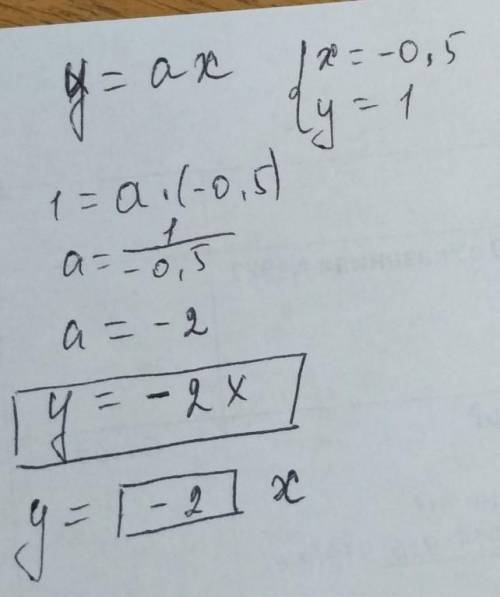 y = ax { x = -0,5
y = 1
1 = a · (-0,5)
a = 1/-0,5
a = -2
y = -2x
y = -2 x